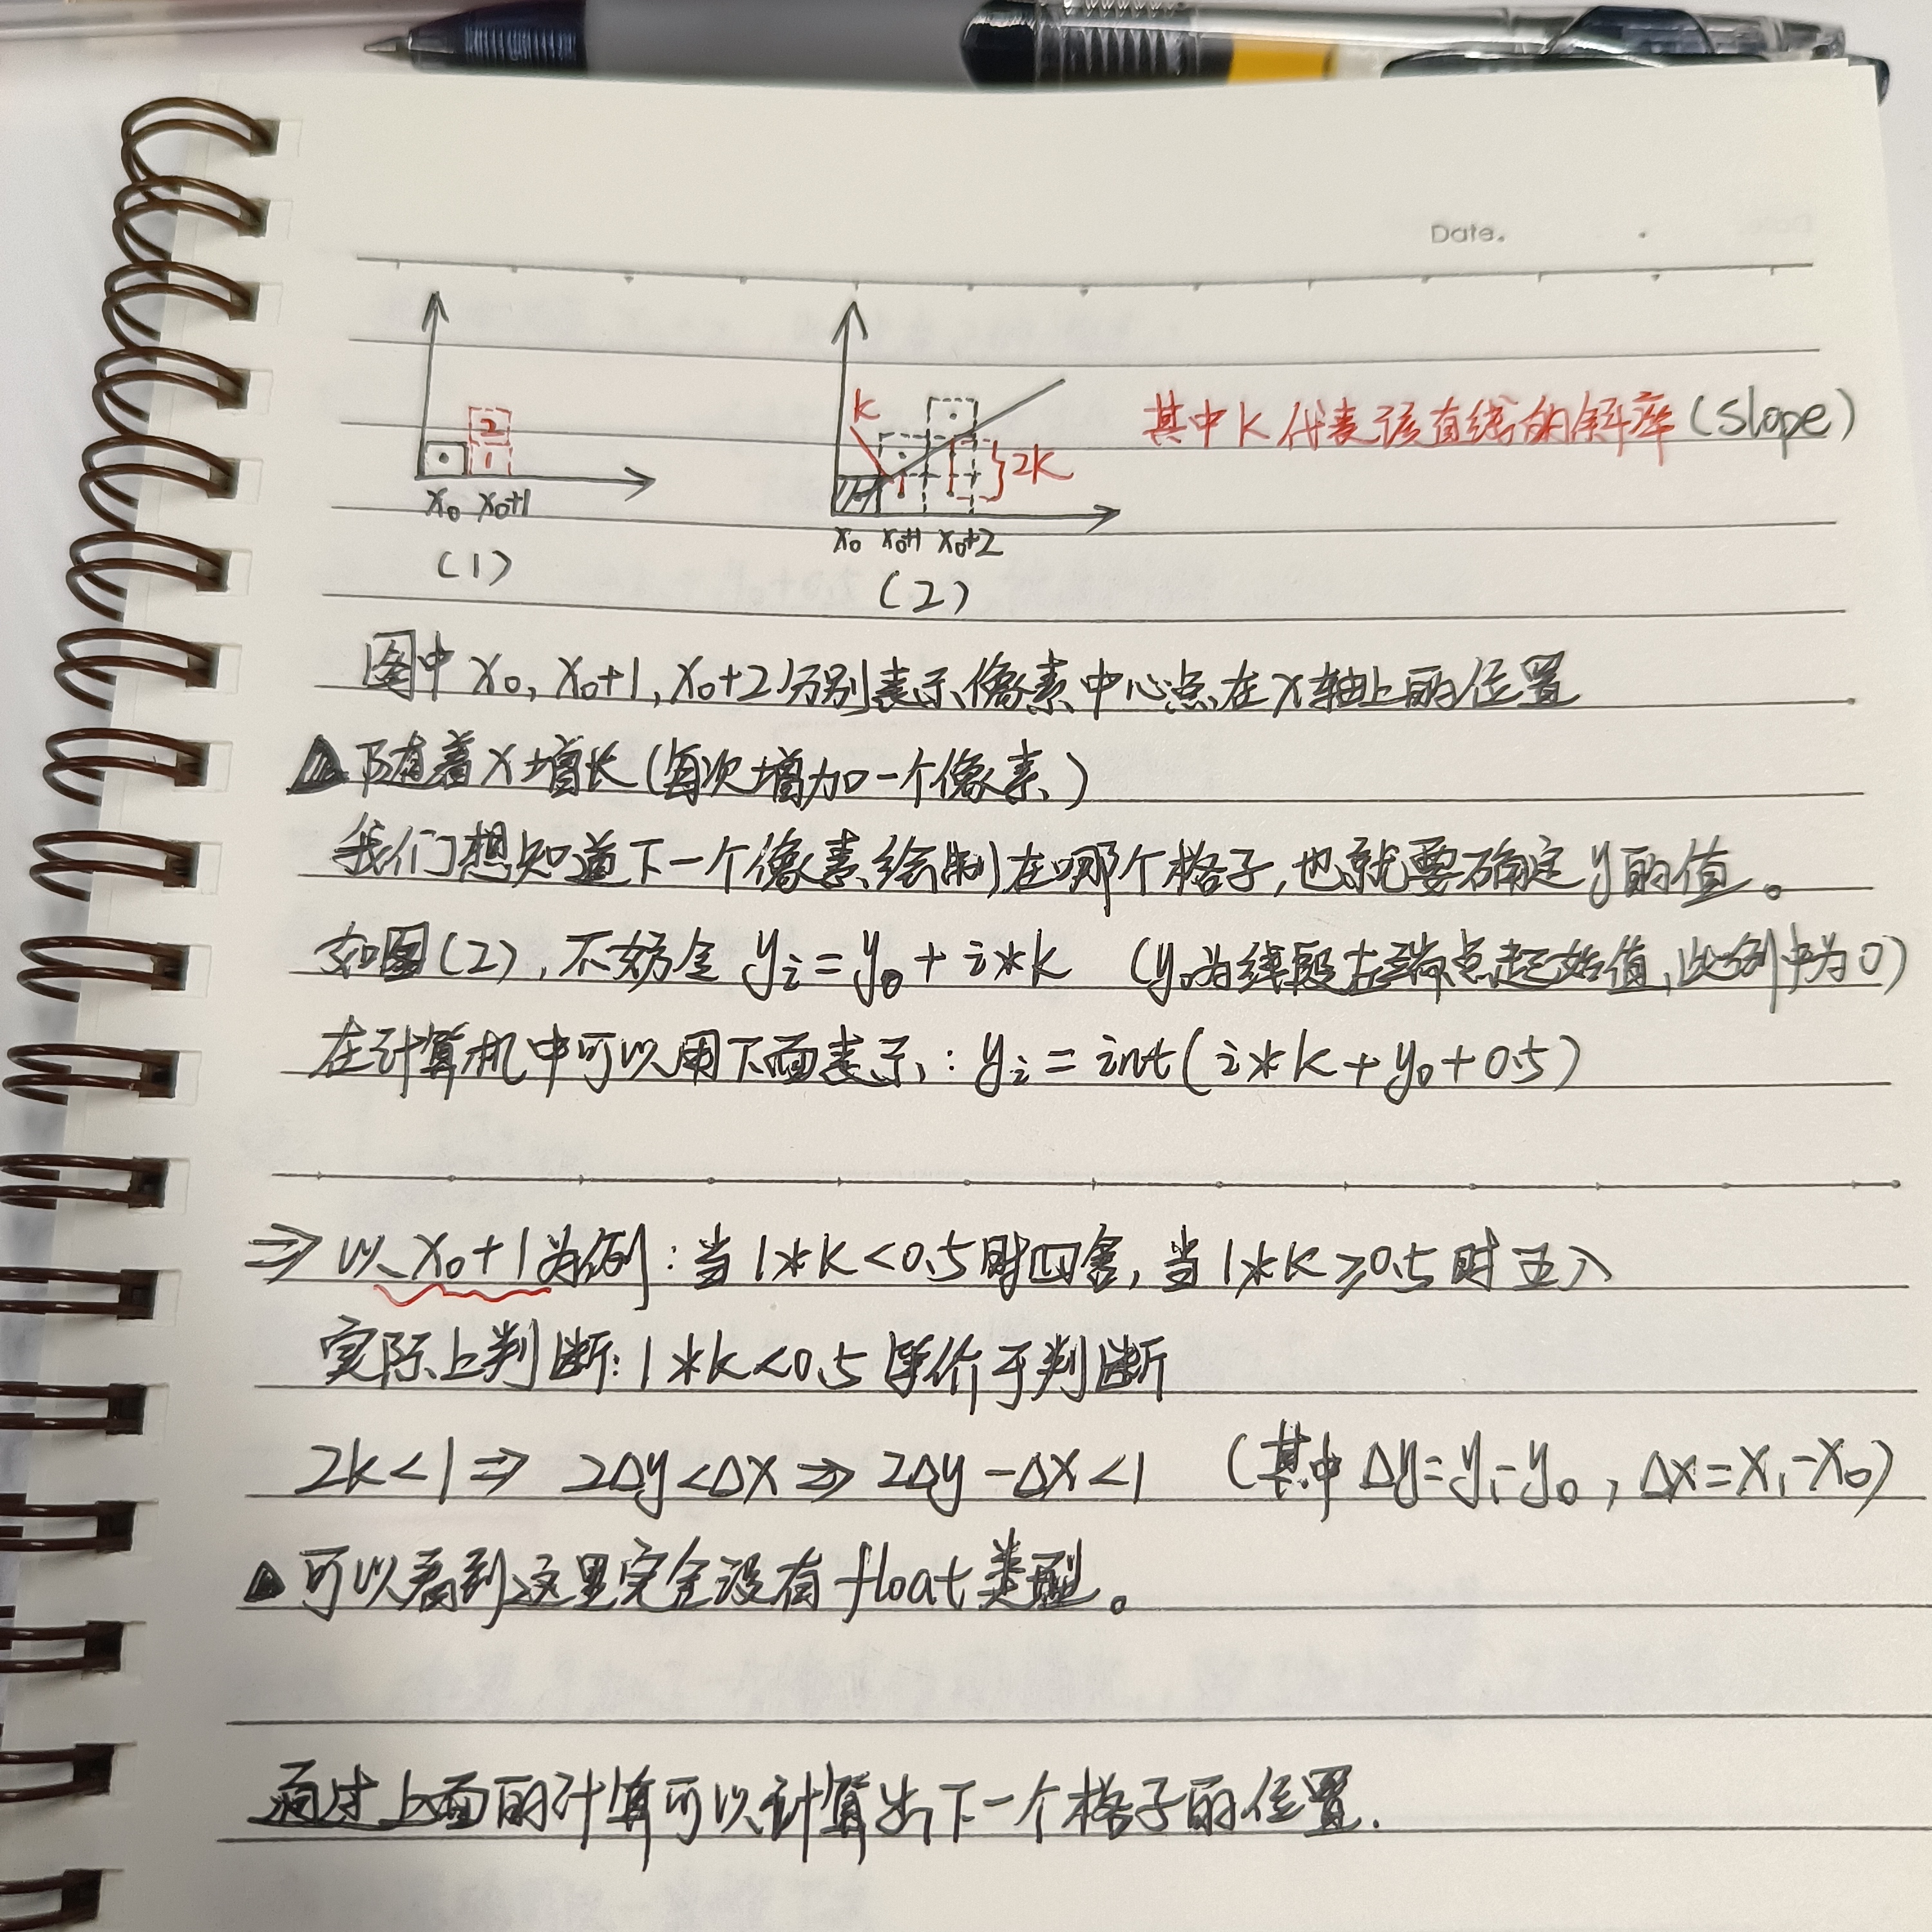 Date.
2
1
x₀ x₀+1
(1)
k
2k
x₀ x₀+1 x₀+2
(2)
其中k代表该直线的斜率(slope)
图中x₀, x₀+1, x₀+2分别表示像素中心点在x轴上的位置
▲随着x增长(每次增加一个像素)
我们想知道下一个像素绘制在哪个格子,也就要确定y的值。
如图(2),不妨令 yᵢ=y₀+i*k (y₀为线段左端点起始值,此例中为0)
在计算机中可以用下面表示: yᵢ=int(i*k+y₀+0.5)
⇒以x₀+1为例:当1*k<0.5时四舍,当1*k≥0.5时五入
实际上判断:1*k<0.5等价于判断
2k<1⇒ 2Δy<Δx⇒2Δy-Δx<1 (其中Δy=y₁-y₀, Δx=x₁-x₀)
▲可以看到这里完全没有float类型。
通过上面的计算可以计算出下一个格子的位置.